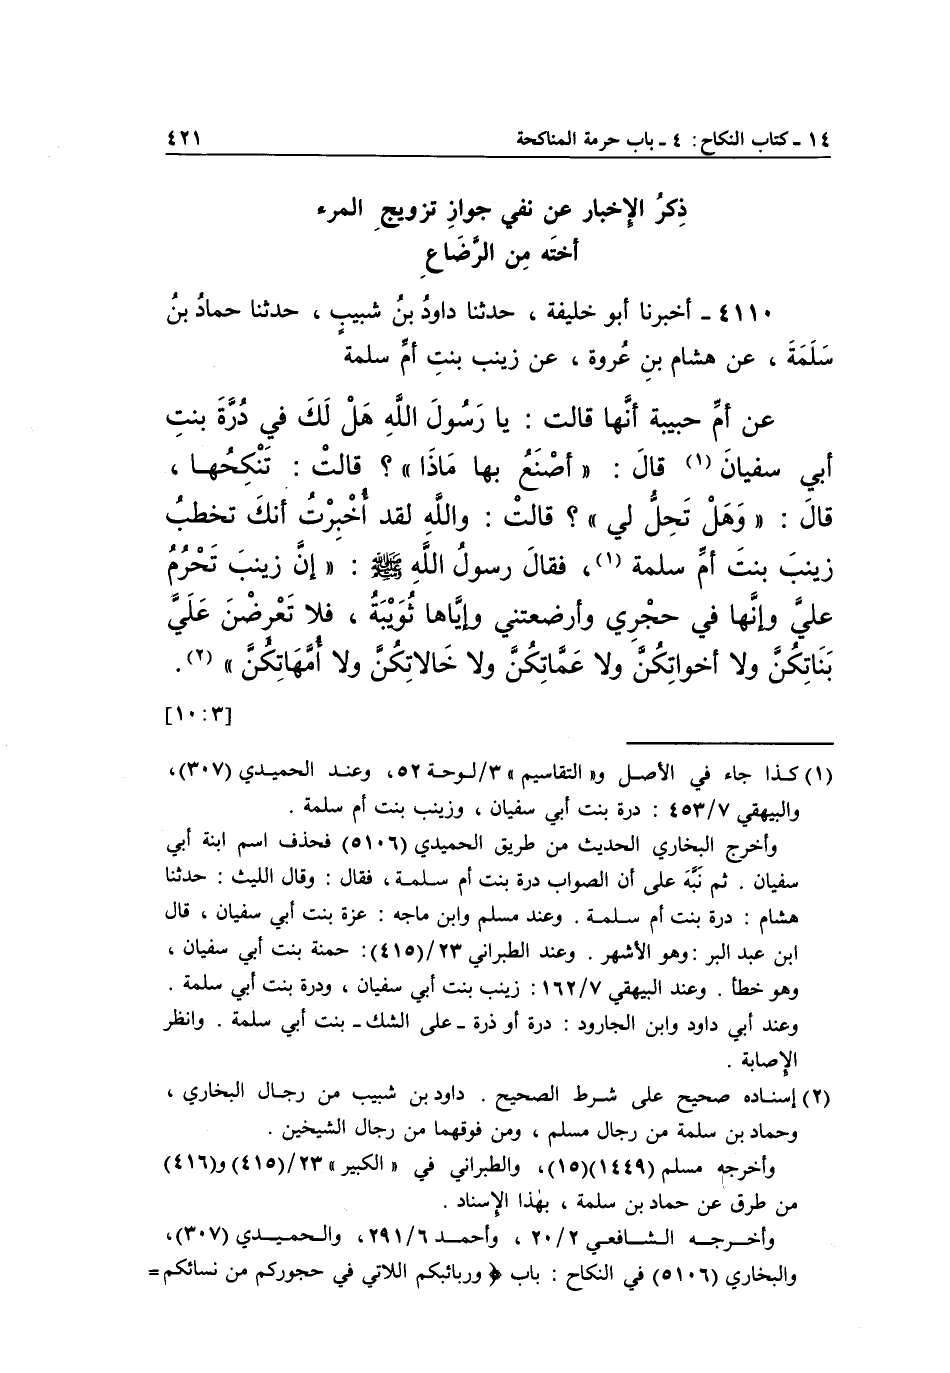 ١٤ ـ كتاب النكاح: ٤ ـ باب حرمة المناكحة ٤٢١
ذِكرُ الإخبار عن نفي جوازِ تزويجِ المرء
أختَه مِن الرَّضَاعِ
٤١١٠ ـ أخبرنا أبو خليفة ، حدثنا داودُ بنُ شبيبٍ ، حدثنا حمادُ بنُ
سَلَمَةَ ، عن هشام بنِ عُروة ، عن زينب بنتِ أمِّ سلمة
عن أمِّ حبيبة أنَّها قالت : يا رَسُولَ اللَّهِ هَلْ لَكَ في دُرَّةَ بنتِ
أبي سفيانَ (١) قالَ : « أصْنَعُ بها مَاذَا » ؟ قالتْ : تَنْكِحُهـا ،
قالَ : « وَهَلْ تَحِلُّ لي » ؟ قالتْ : واللَّهِ لقد أُخْبِرْتُ أنكَ تخطبُ
زينبَ بنتَ أمِّ سلمة (١)، فقالَ رسولُ اللَّهِ ﷺ : « إنَّ زينبَ تَحْرُمُ
عليَّ وإنَّها في حجْرِي وأرضعتني وإيَّاها ثُوَيْبَةُ ، فلا تَعْرِضْنَ عَلَيَّ
بَنَاتِكُنَّ ولا أخواتِكُنَّ ولا عَمَّاتِكُنَّ ولا خَالاتِكُنَّ ولا أُمَّهَاتِكُنَّ » (٢).
[١٠:٣]
(١) كـذا جاء في الأصـل و« التقاسيم » ٣/لـوحـة ٥٢، وعنـد الحميـدي (٣٠٧)،
والبيهقي ٤٥٣/٧ : درة بنت أبي سفيان ، وزينب بنت أم سلمة .
وأخرج البخاري الحديث من طريق الحميدي (٥١٠٦) فحذف اسم ابنة أبي
سفيان . ثم نَبَّهَ على أن الصواب درة بنت أم سـلمـة ، فقال : وقال الليث : حدثنا
هشام : درة بنت أم سـلمـة . وعند مسلم وابن ماجه : عزة بنت أبي سفيان ، قال
ابن عبد البر :وهو الأشهر . وعند الطبراني ٢٣/(٤١٥): حمنة بنت أبي سفيان ،
وهو خطأ . وعند البيهقي ١٦٢/٧: زينب بنت أبي سفيان ، ودرة بنت أبي سلمة .
وعند أبي داود وابن الجارود : درة أو ذرة ـ على الشك ـ بنت أبي سلمة . وانظر
الإصابة .
(٢) إسنـاده صحيح على شـرط الصحيح . داود بن شبيب من رجـال البخاري ،
وحماد بن سلمة من رجال مسلم ، ومن فوقهما من رجال الشيخين .
وأخرجه مسلم (١٤٤٩)(١٥)، والطبراني في « الكبير » ٢٣/(٤١٥) و(٤١٦)
من طرق عن حماد بن سلمة ، بهٰذا الإسناد .
وأخـرجـه الشـافعـي ٢٠/٢ ، وأحمـد ٢٩١/٦، والـحميـدي (٣٠٧)،
والبخاري (٥١٠٦) في النكاح : باب ﴿ وربائبكم اللاتي في حجوركم من نسائكم=